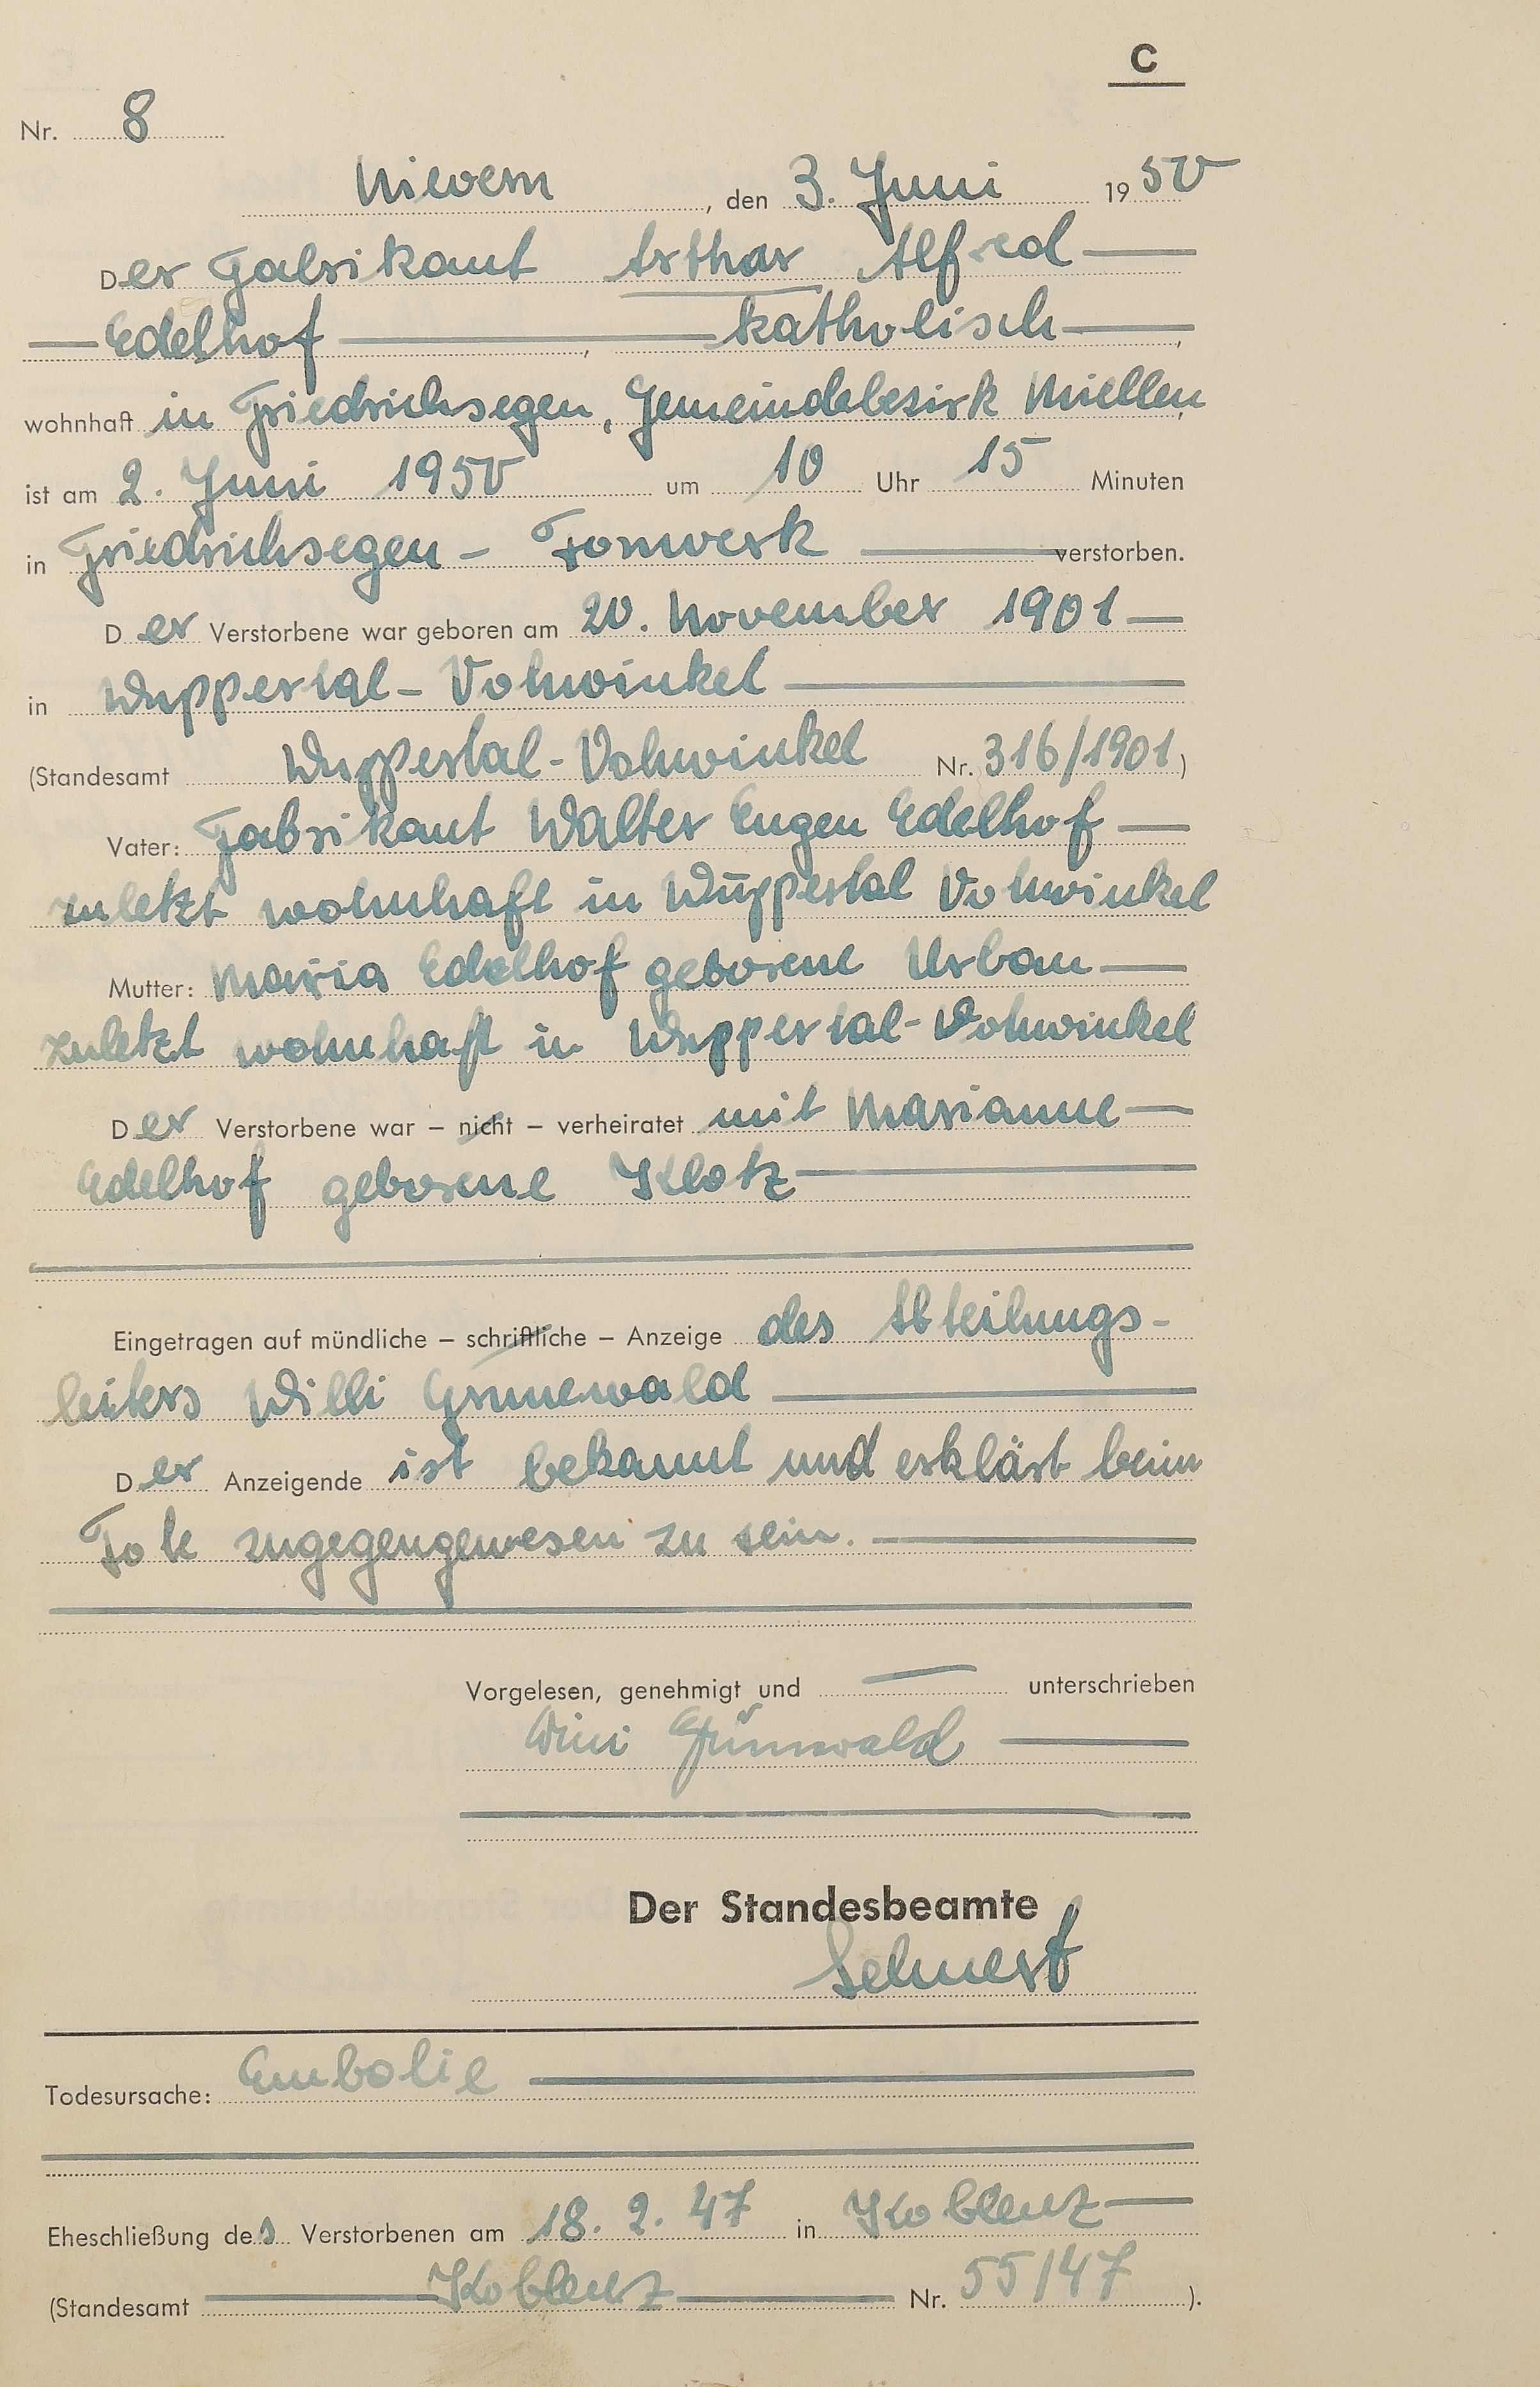 C
Nr. 8
Nievern, den 3. Juni 1950
Der Fabrikant Arthur Alfred
Edelhof, katholisch,
wohnhaft in Friedrichsegen, Gemeindebezirk Miellen
ist am 2. Juni 1950 um 10 Uhr 15 Minuten
in Friedrichsegen - Tonwerk verstorben.
Der Verstorbene war geboren am 20. November 1901
in Wuppertal-Vohwinkel
(Standesamt Wuppertal-Vohwinkel Nr. 316/1901)
Vater: Fabrikant Walter Eugen Edelhof
zuletzt wohnhaft in Wuppertal Vohwinkel
Mutter: Maria Edelhof geborene Urban
zuletzt wohnhaft in Wuppertal-Vohwinkel
Der Verstorbene war – nicht – verheiratet mit Marianne
Edelhof geborene Klotz
Eingetragen auf mündliche – schriftliche – Anzeige des Abteilungs-
leiters Willi Grunewald
Der Anzeigende ist bekannt und erklärt beim
Tote zugegengewesen zu sein.
Vorgelesen, genehmigt und unterschrieben
Willi Grünwald
Der Standesbeamte
Todesursache: Embolie
Eheschließung des Verstorbenen am 18. 2. 47 in Koblenz
(Standesamt Koblenz Nr. 55/47).